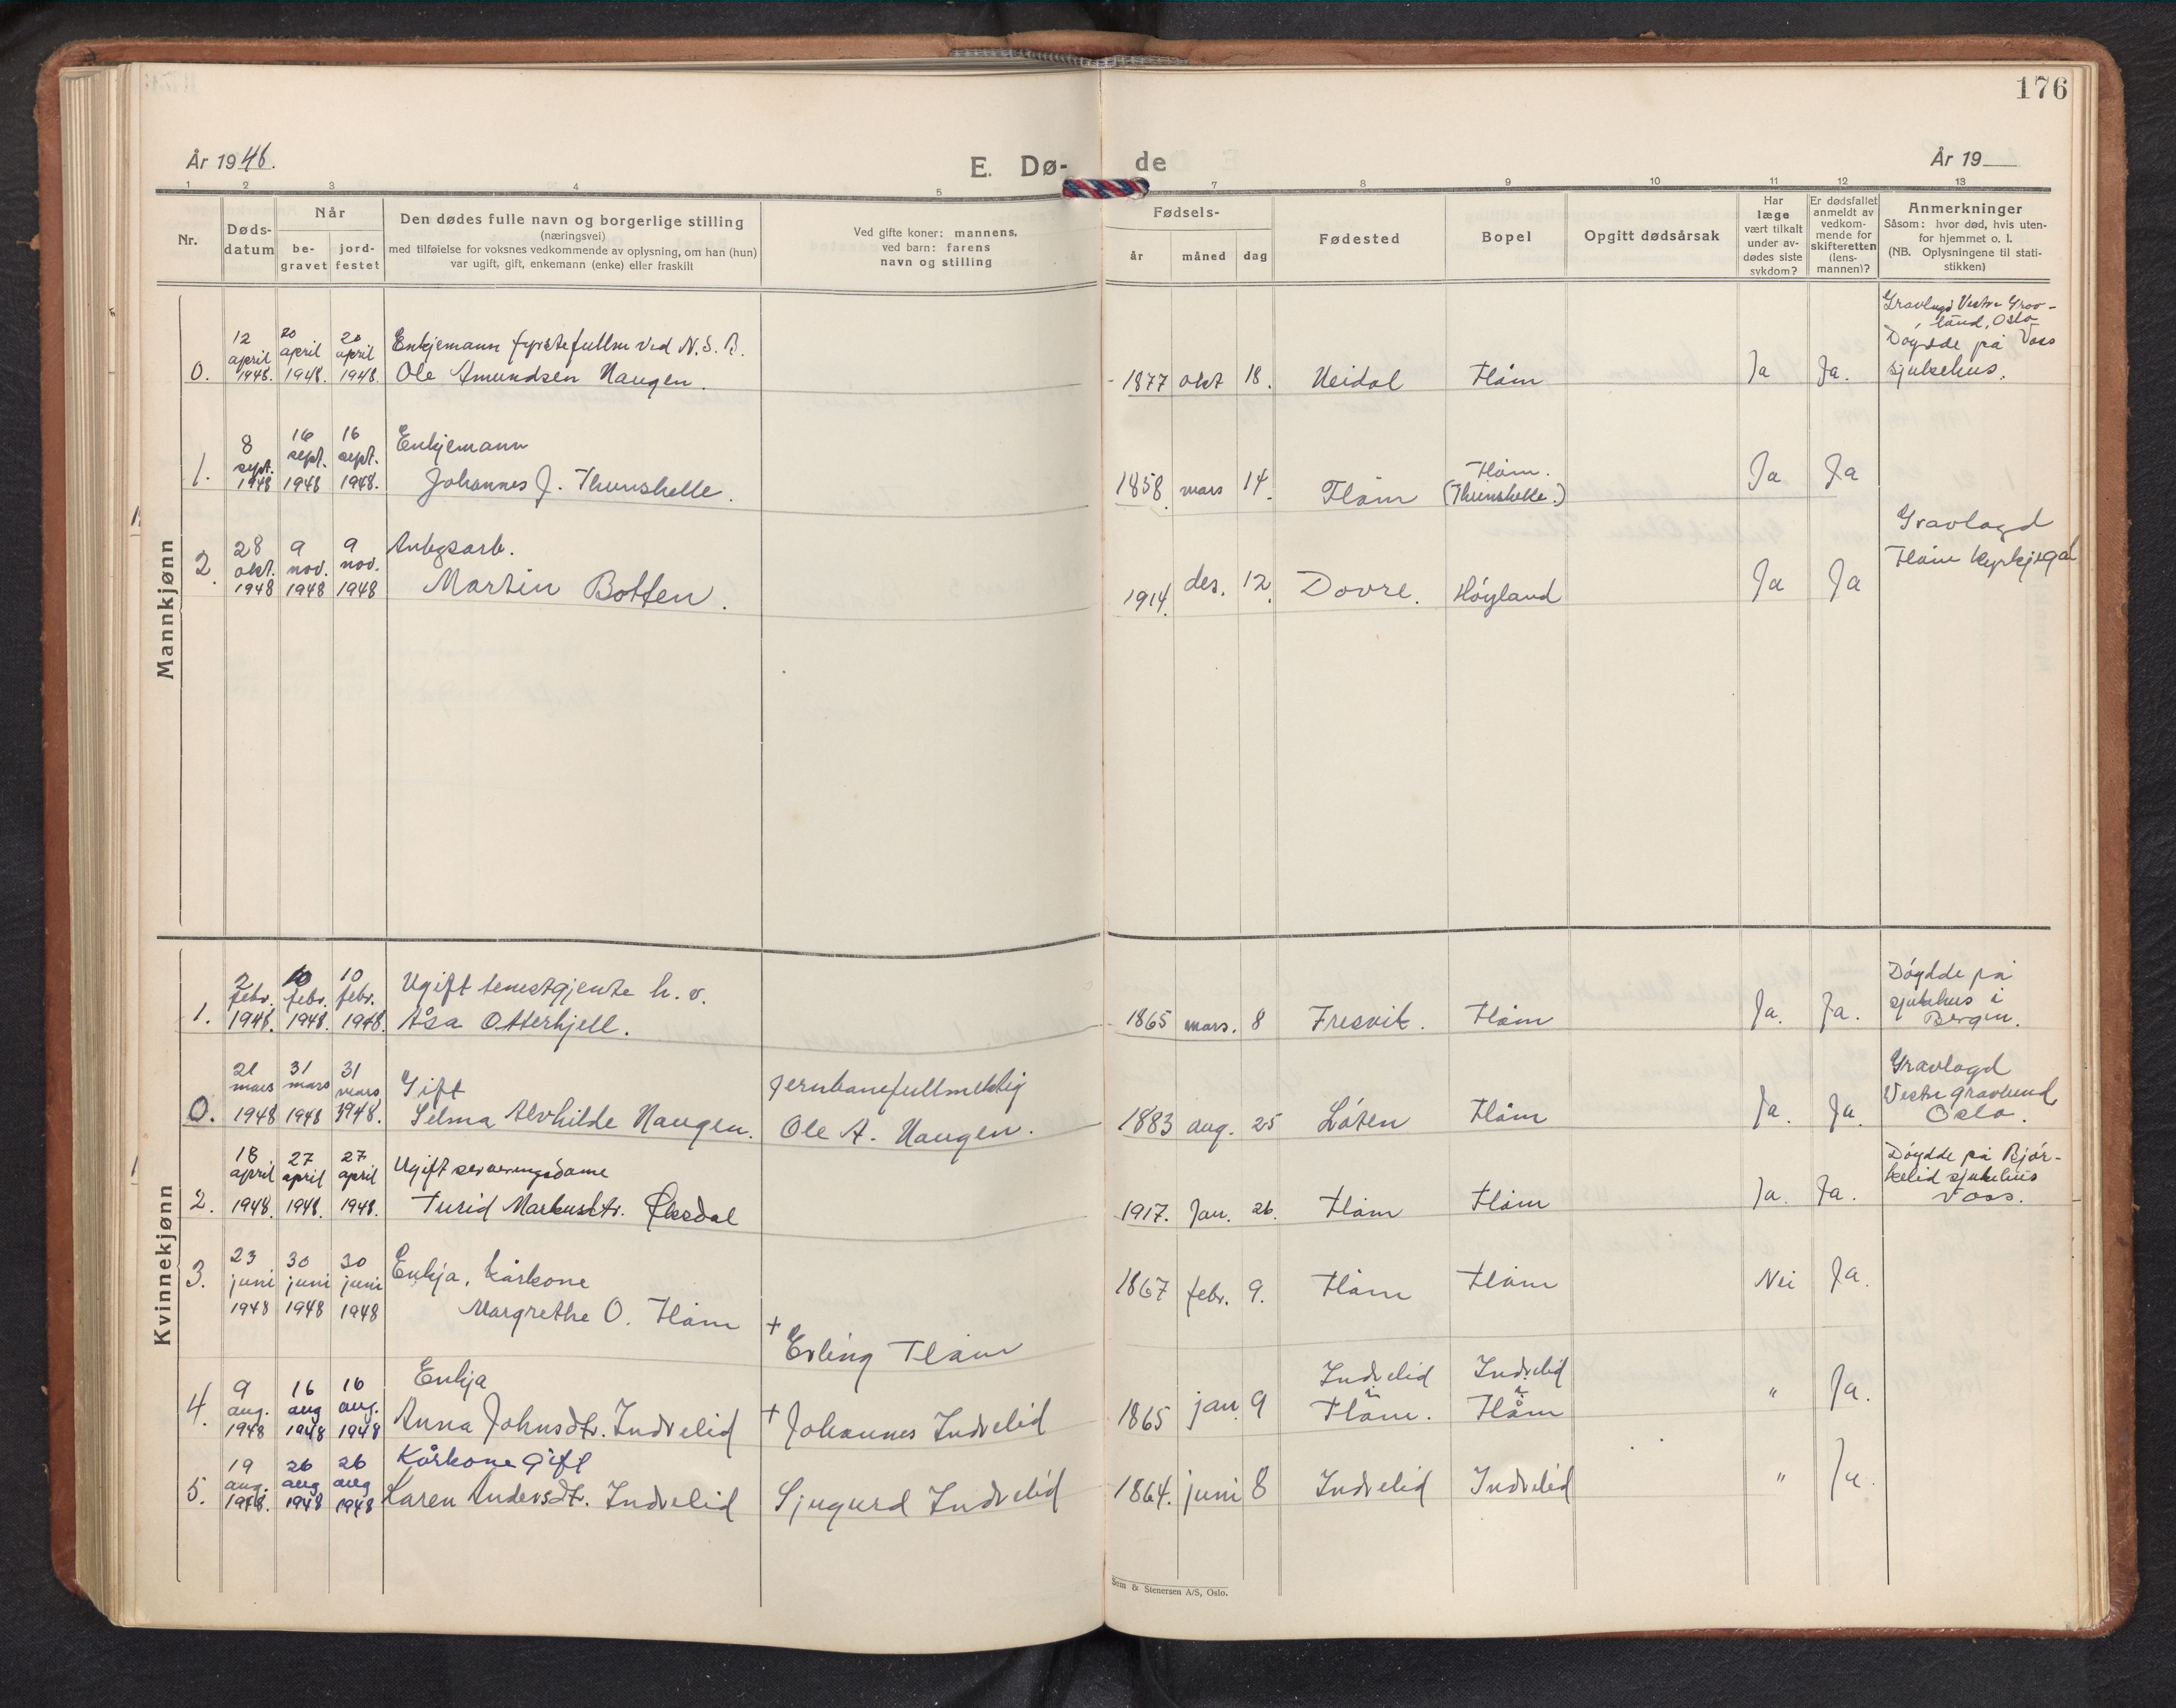 176
År 1946.
E. Dø- de
År 19
1 2 3 4 5 7 8 9 10 11 12 13
Nr.
Døds-
datum
Når
be-
gravet
jord-
festet
Den dødes fulle navn og borgerlige stilling
(næringsvei)
med tilføielse for voksnes vedkommende av oplysning, om han (hun)
var ugift, gift, enkemann (enke) eller fraskilt
Ved gifte koner: mannens,
ved barn: farens
navn og stilling
Fødsels-
år måned dag
Fødested
Bopel
Opgitt dødsårsak
Har
læge
vært tilkalt
under av-
dødes siste
sykdom?
Er dødsfallet
anmeldt av
vedkom-
mende for
skifteretten
(lens-
mannen)?
Anmerkninger
Såsom: hvor død, hvis uten-
for hjemmet o. l.
(NB. Oplysningene til stati-
stikken)
Mannkjønn
0.
12
april
1948.
20
april
1948.
20
april
1948.
Enkjemann fyrstefullm ved N. S. B.
Ole Amundsen Haugen.
1877 okt 18. Heidal Flåm Ja Ja.
Gravlagd Vestre Grav-
lund, Oslo
Døydde på Voss
sjukehus.
1.
8
sept.
1948
16
sept.
1948
16
sept.
1948.
Enkjemann
Johannes J. Thunshelle.
1858 mars 14. Flåm
Flåm.
(Thunshelle.)
Ja Ja
2.
28
okt.
1948
9
nov.
1948
9
nov.
1948
Anlegsarb.
Martin Botten.
1914. des. 12. Dovre. Høyland Ja Ja
Gravlagd
Flåm kyrkjegal
Kvinnekjønn
1.
2
febr.
1948.
10
febr.
1948.
10
febr.
1948.
Ugift tenestgjente h. v.
Åsa Otterhjell.
1865 mars. 8 Fresvik. Flåm Ja. Ja.
Døydde på
sjukehus i
Bergen.
0.
21
mars
1948
31
mars
1948
31
mars
1948.
Gift
Selma Alvhilde Haugen.
Jernbanefullmektig
Ole A. Haugen.
1883 aug. 25 Løten Flåm Ja. Ja.
Gravlagd
Vestre gravlund,
Oslo.
2.
18
april
1948.
27
april
1948.
27
april
1948.
Ugift serveringsdame
Turid Markusdtr. Øksdal
1917. Jan. 26. Flåm Flåm Ja. Ja.
Døydde på Bjør-
kelid sjukehus
Voss.
3.
23
juni
1948
30
juni
1948
30
juni
1948
Enkja, kårkone
Margrethe O. Flåm
+
Erling Flåm
1867 febr. 9. Flåm Flåm Nei Ja.
4.
9
aug.
1948
16
aug
1948
16
aug.
1948
Enkja
Anna Johnsdtr. Indrelid
+ Johannes Indrelid
1865 jan. 9
Indrelid
i
Flåm.
Indrelid
i
Flåm
" Ja.
5.
19
aug.
1948.
26
aug
1948
26
aug
1948
Kårkone Gift
Karen Andersdtr. Indrelid
Sjugurd Indrelid
1864. juni 8 Indrelid Indrelid " Ja.
Sem & Stenersen A/S, Oslo.